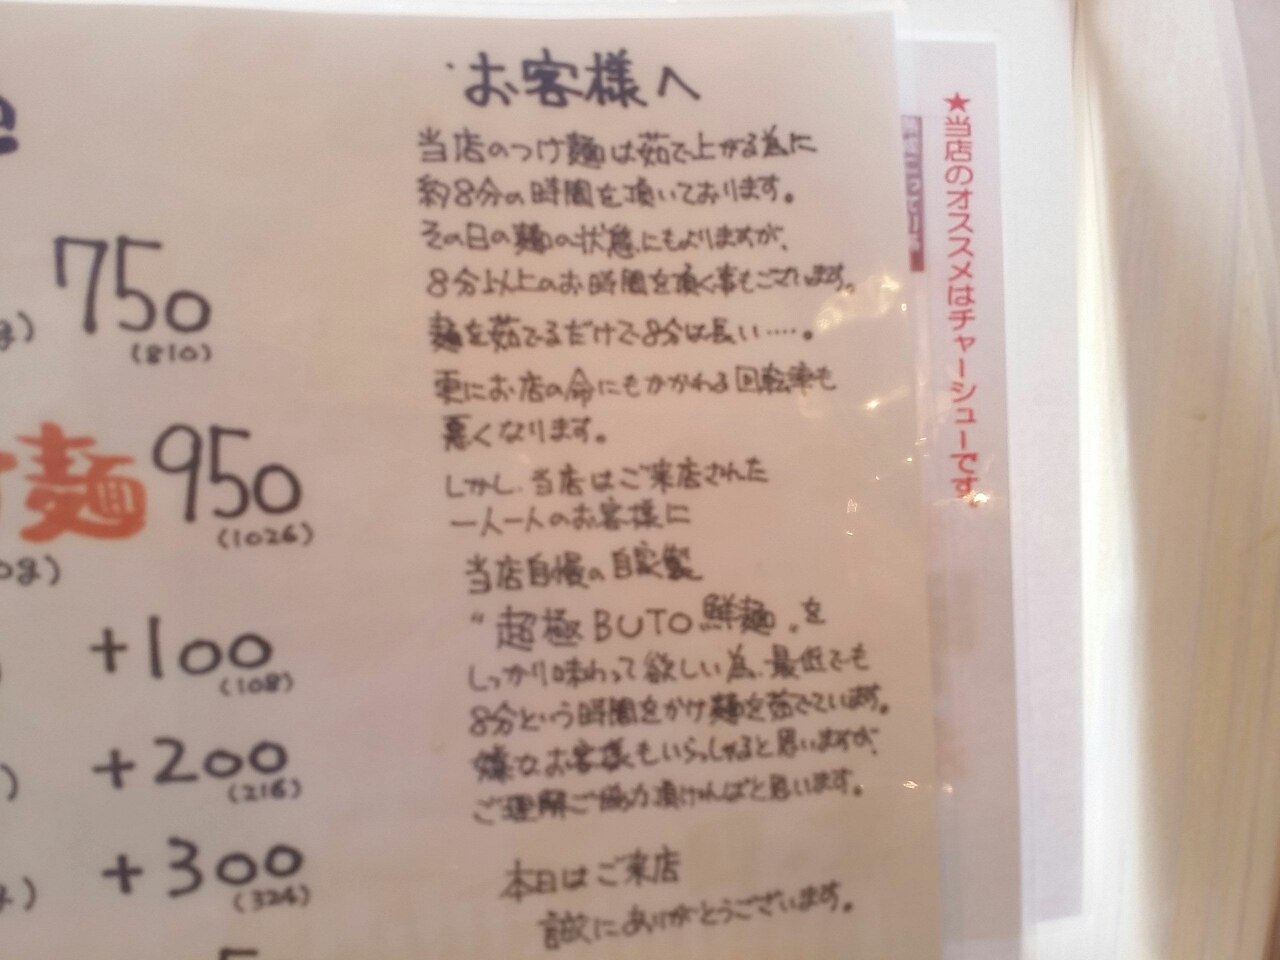 お客様へ
当店のつけ麺は茹で上がる為に
約8分の時間を頂いております。
その日の麺の状態にもよりますが、
8分以上のお時間を頂く事もございます。
麺を茹でるだけで8分は長い‥‥。
更にお店の命にもかかわる回転率も
悪くなります。
しかし、当店はご来店された
一人一人のお客様に
当店自慢の自家製
"超極BUTO鮮麺"を
しっかり味わって欲しい為、最低でも
8分という時間をかけ麺を茹でています。
嫌なお客様もいらっしゃると思いますが、
ご理解ご協力頂ければと思います。
本日はご来店
誠にありがとうございます。
750
(810)
麺 950
(1026)
+100
(108)
+200
(216)
+300
(324)
★当店のオススメはチャーシューです。